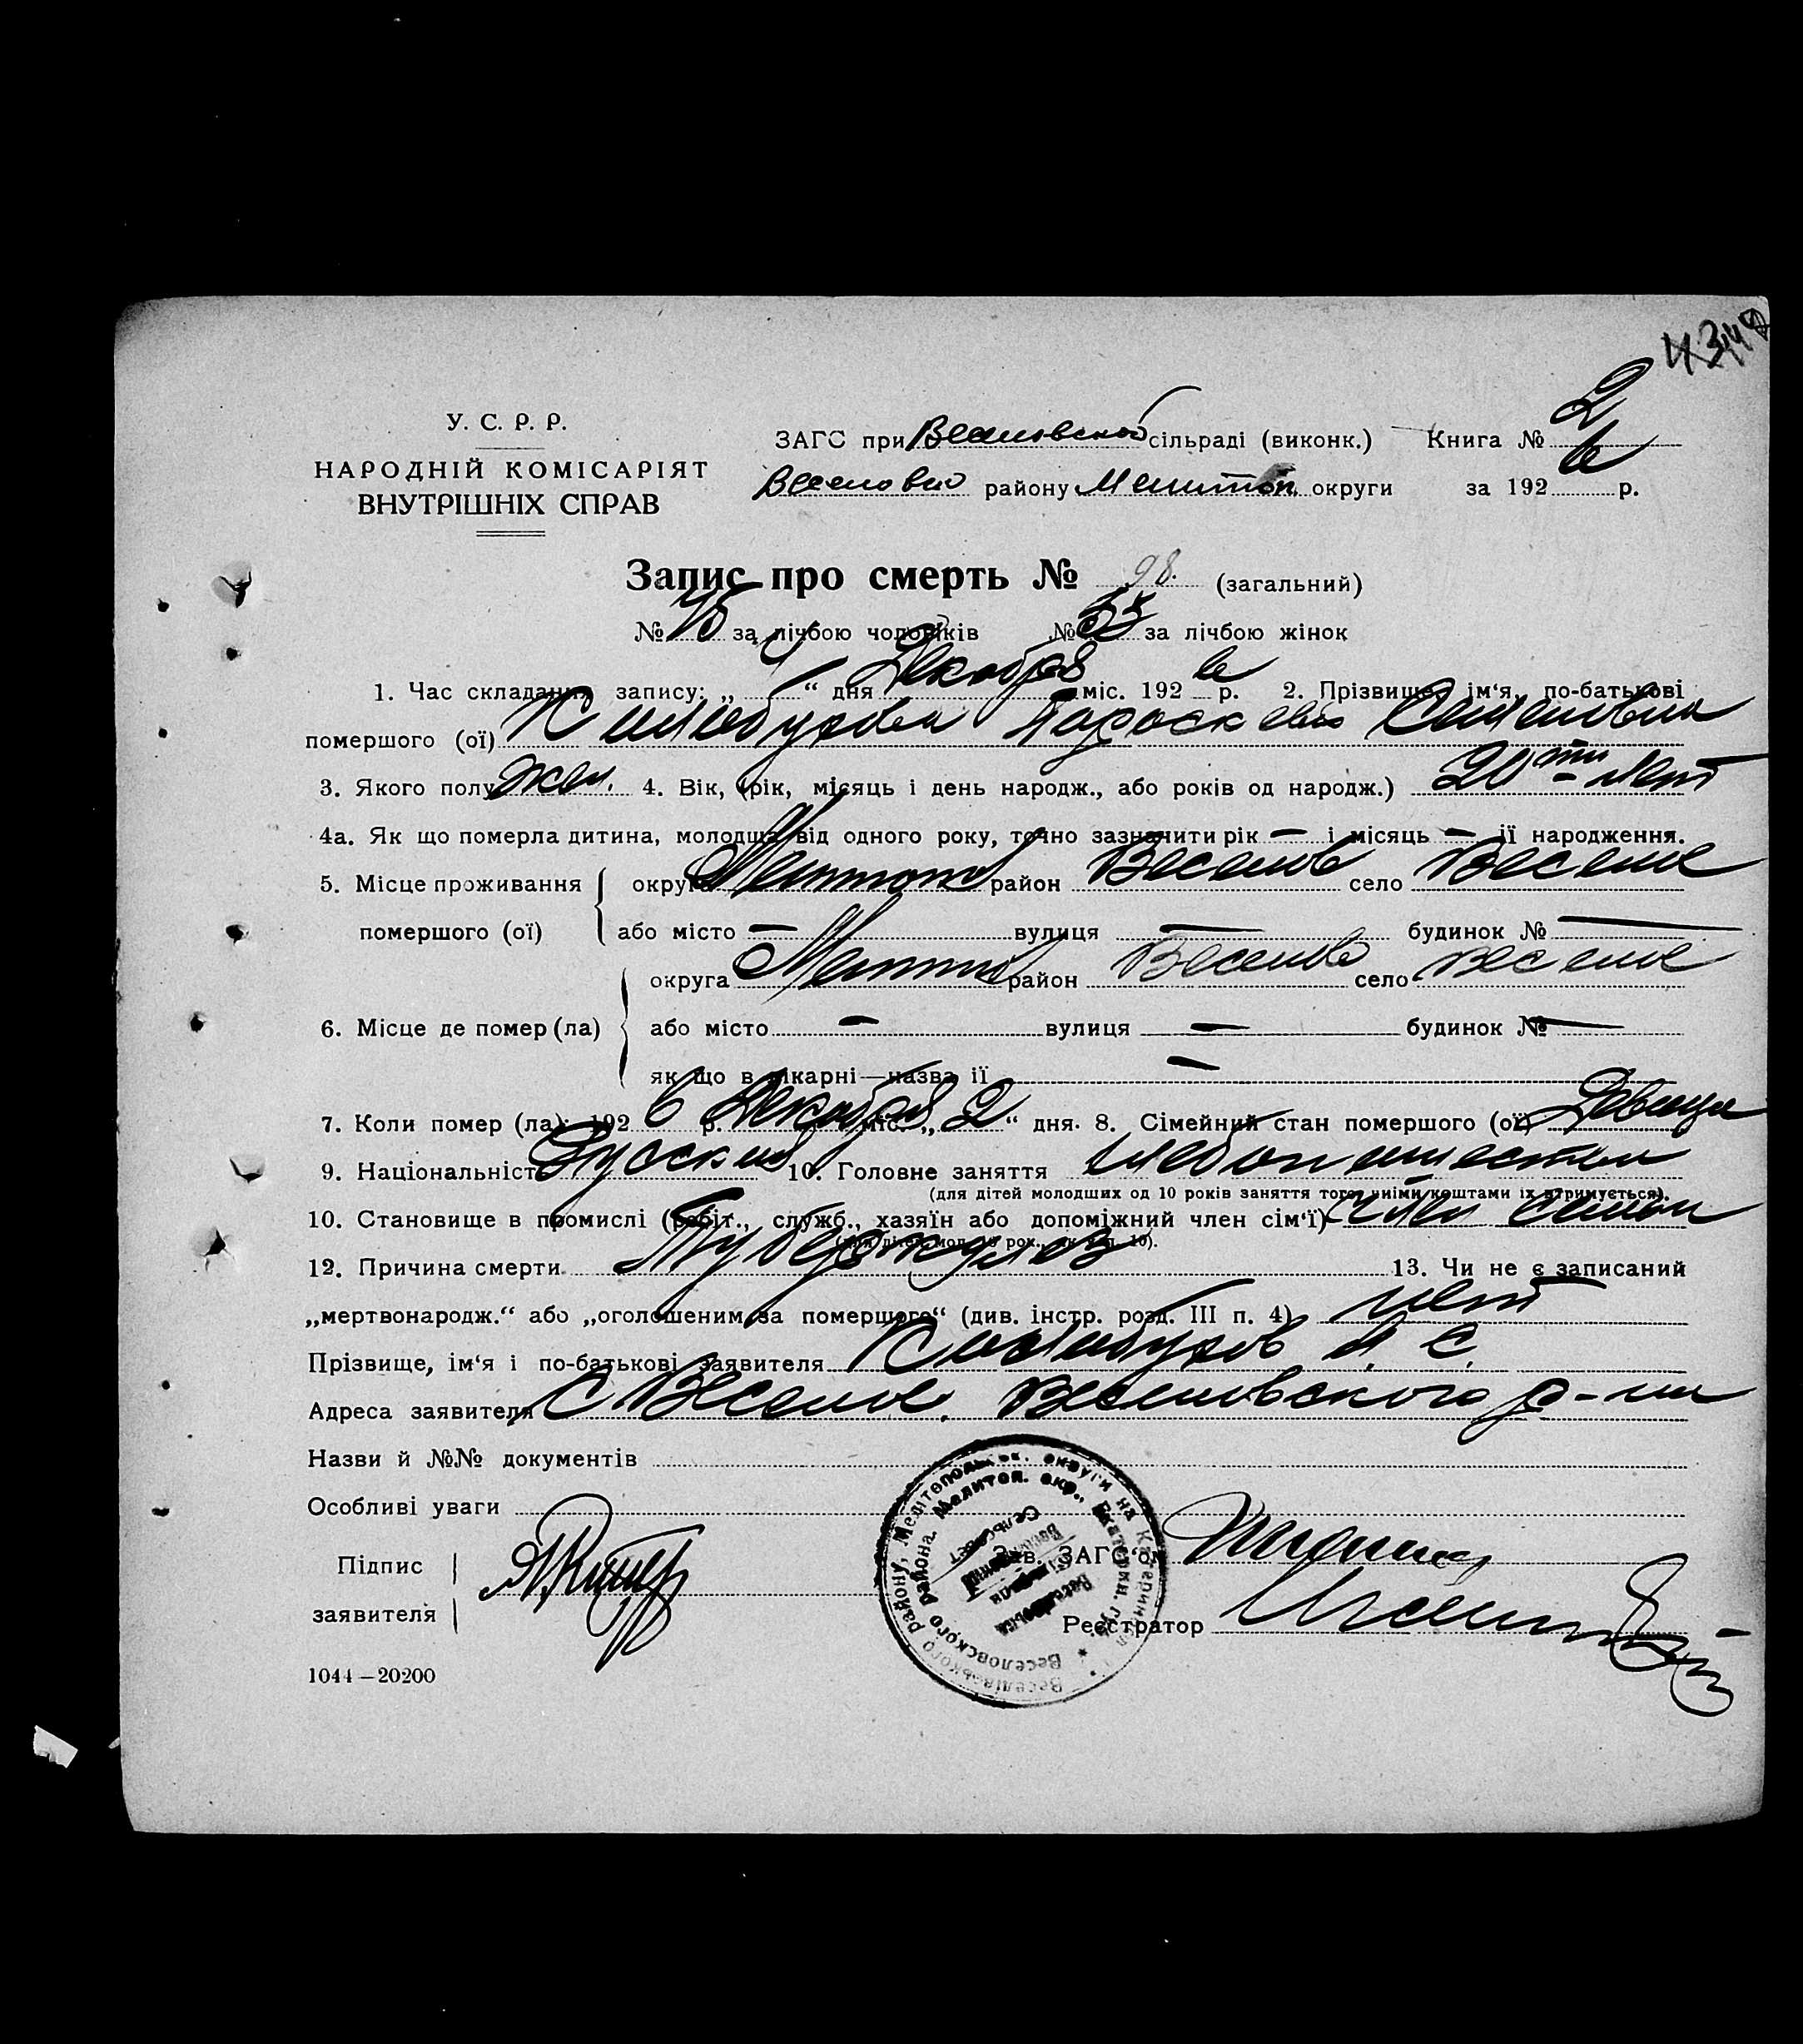 У. С. Р. Р.
НАРОДНІЙ КОМІСАРІЯТ
ВНУТРІШНІХ СПРАВ
ЗАГС при Веселовской сільраді (виконк.) Книга № 2
Веселовко району Мелитоп. округи за 192 6 р.
Запис про смерть № 98. (загальний)
№ 45 за лічбою чоловіків № 53 за лічбою жінок
1. Час складання запису: „ 4 “ дня Декабря міс. 192 6 р. 2. Прізвище, ім‘я, по-батькові
помершого (ої) Параскева Семеновна
3. Якого полу жен. 4. Вік, (рік, місяць і день народж., або років од народж.) 20ти лет
4а. Як що померла дитина, молодща від одного року, точно зазначити рік — і місяць — її народження.
5. Місце проживання округа Мелитоп район Веселов село Веселое
помершого (ої) або місто — вулиця — будинок № —
округа Мелитоп район Веселов село Веселое
6. Місце де помер (ла) або місто — вулиця — будинок № —
як що в лікарні—назва її —
7. Коли помер (ла): 192 6 р. Декабря міс. „ 2 “ дня. 8. Сімейний стан помершого (ої) Девица
9. Національність Русская 10. Головне заняття хлебопашество
(для дітей молодших од 10 років заняття того, чиїми коштами їх втримується).
10. Становище в промислі (робіт., служб., хазяїн або допоміжний член сім‘ї) член семьи
(для дітей мол. 10 рок., як у п. 10).
12. Причина смерти Туберкулез 13. Чи не є записаний
„мертвонародж.“ або „оголошеним за помершого“ (див. інстр. розд. III п. 4) нет
Прізвище, ім‘я і по-батькові заявителя
Адреса заявителя С Веселое. Веселовского р-на
Назви й №№ документів
Особливі уваги
Підпис
заявителя
Зав. ЗАГС‘ом
Реєстратор
1044—20200